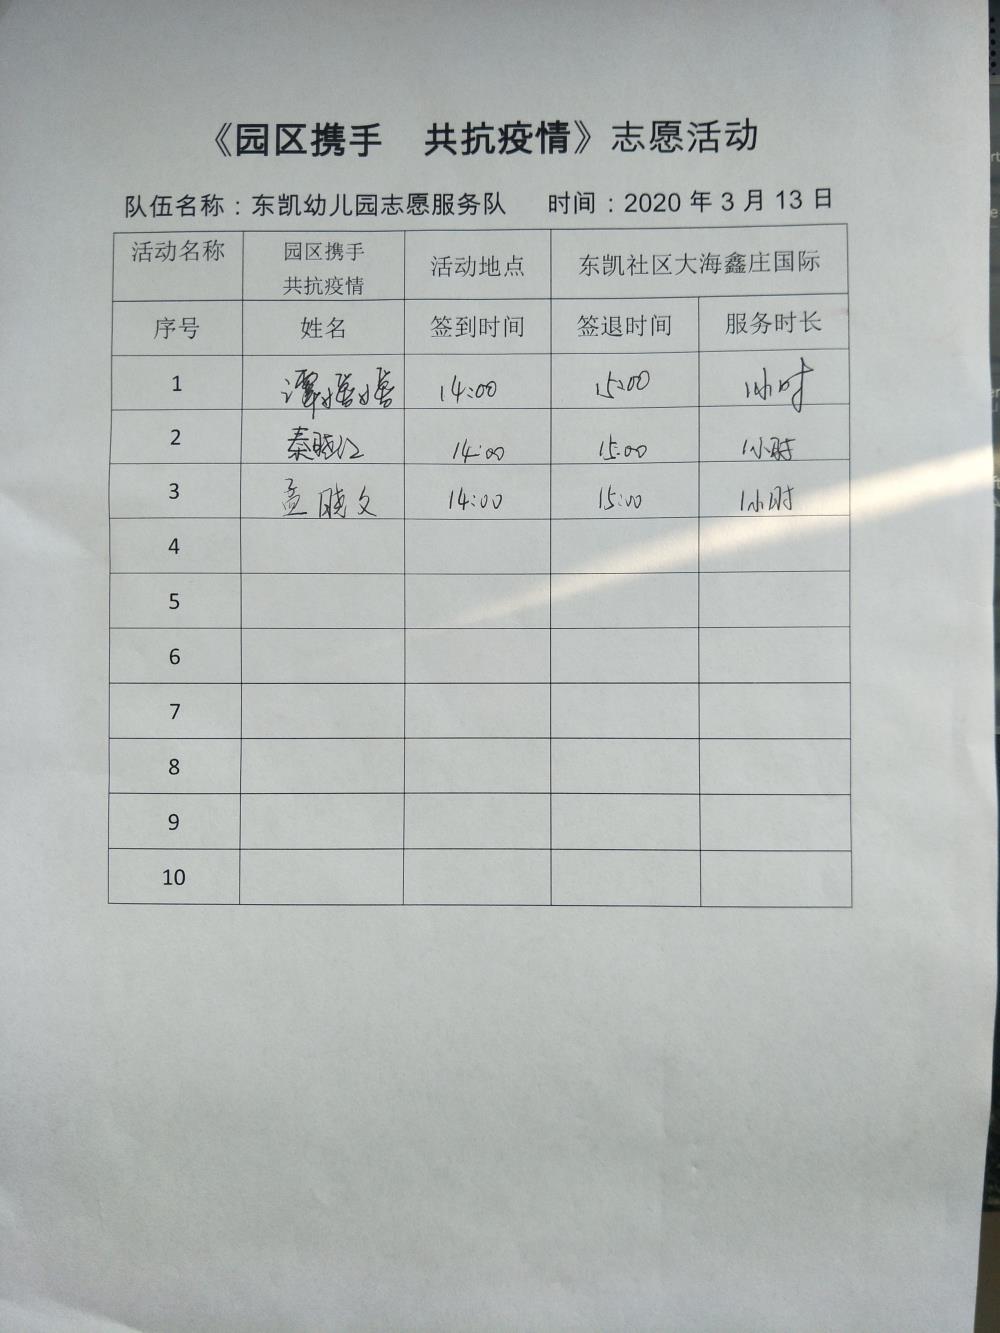 《园区携手 共抗疫情》志愿活动
队伍名称：东凯幼儿园志愿服务队 时间：2020 年 3 月 13 日
活动名称 园区携手 共抗疫情 活动地点 东凯社区大海鑫庄国际
序号 姓名 签到时间 签退时间 服务时长
1 谭 14:00 15:00 1小时
2 秦晓江 14:00 15:00 1小时
3 孟晓文 14:00 15:00 1小时
4
5
6
7
8
9
10